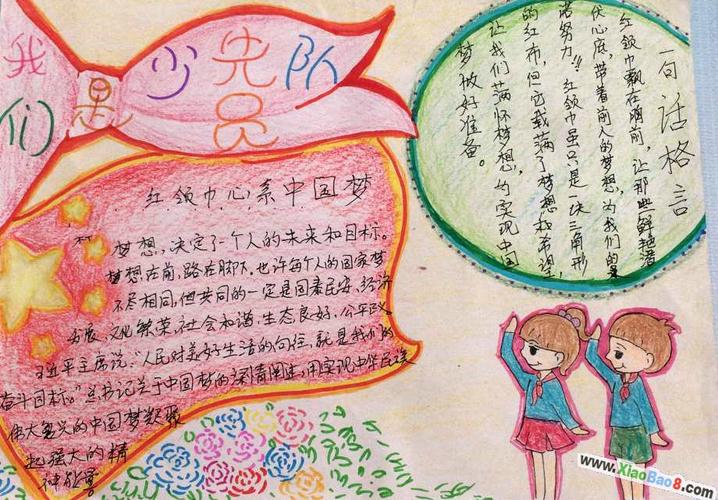 我们是少先队员
红领巾心系中国梦
梦想，决定了一个人的未来和目标。
梦想在前，路在脚下，也许每个人的国家梦
不尽相同，但共同的一定是国泰民安，经济
发展，文化繁荣，社会和谐，生态良好，公平
习近平主席说："人民对美好生活的向往，就是我们的
奋斗目标。"总书记关于中国梦的深情阐述，用实现中华民族
伟大复兴的中国梦凝聚
起强大的精
神能量。
一句话格言
红领巾飘在胸前，让那些鲜艳潜
伏心底，带着前人的梦想，为我们的
诺努力！红领巾虽只是一块三角形
的红布，但它载满了梦想和希望，
让我们满怀梦想，为实现中国
梦做好准备。
www.XiaoBao8.com